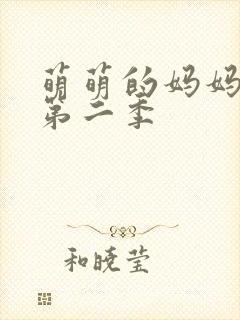 萌萌的妈妈
第二季
和晓莹